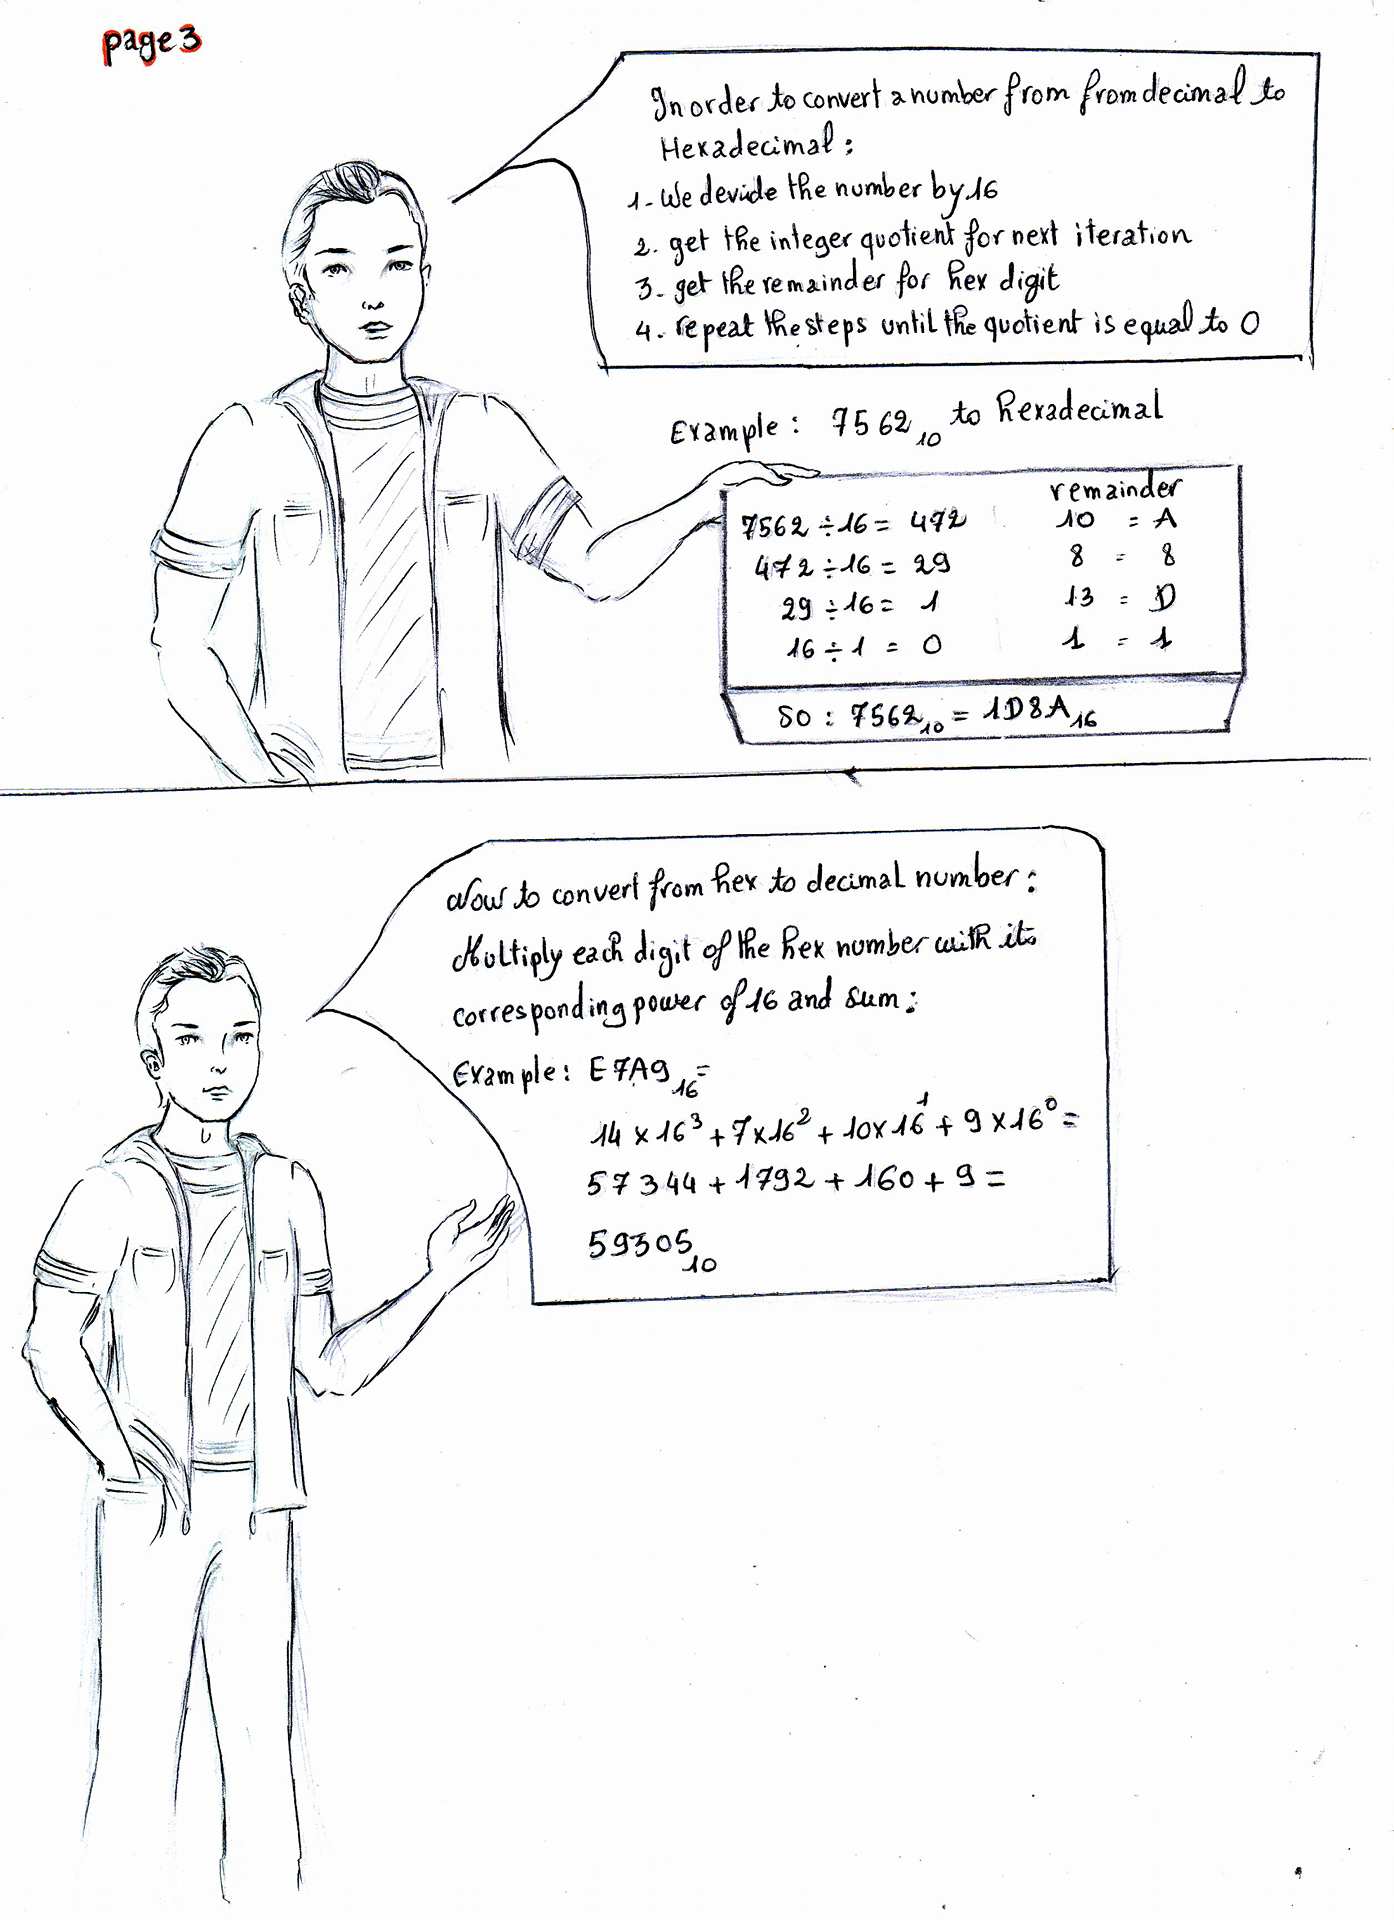 page 3
In order to convert a number from from decimal to
Hexadecimal :
1- We devide the number by 16
2. get the integer quotient for next iteration
3- get the remainder for hex digit
4. repeat the steps until the quotient is equal to 0
Example : 7562₁₀ to hexadecimal
remainder
7562 ÷ 16 = 472 10 = A
472 ÷ 16 = 29 8 = 8
29 ÷ 16 = 1 13 = D
16 ÷ 1 = 0 1 = 1
SO : 7562₁₀ = 1D8A₁₆
Now to convert from hex to decimal number :
Multiply each digit of the hex number with its
corresponding power of 16 and sum :
Example : E7A9₁₆ =
14 x 16³ + 7 x 16² + 10 x 16¹ + 9 x 16⁰ =
57344 + 1792 + 160 + 9 =
59305₁₀